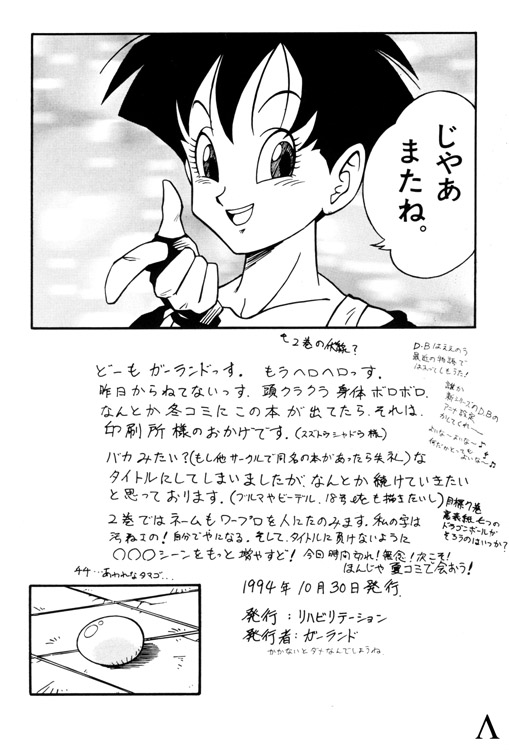 じゃあ
またね。
↑2巻の伏線?
どーもガーランドっす。 もうヘロヘロっす。
昨日からねてないっす。頭クラクラ身体ボロボロ。
なんとか冬コミにこの本が出てたら、それは、
印刷所様のおかげです。(スズトウシャドウ様)
バカみたい?(もし他サークルで同名の本があったら失礼)な
タイトルにしてしまいましたが、なんとか続けていきたい
と思っております。(ブルマやビーデル、18号etcも描きたいし)
2巻ではネームもワープロを人にたのみます。私の字は
汚ねェの!自分でやになる。そして、タイトルに負けないように
〇〇〇シーンをもっと増やすど! 今日時間切れ!無念!次こそ!
ほんじゃ夏コミで会おう!
D.Bはええのう
最近の物語で
誰か
新シリーズのD.Bの
アニメ設定
かしてくれー
よいな~よいな~♪
何だかとっても
よいな~♪
目標7巻
裏表紙七つの
ドラゴンボールが
そろうのはいつか?
44…あわれなタマゴ…
1994年10月30日発行.
発行:リハビリテーション
発行者:ガーランド
かかないとダメなんでしょうね